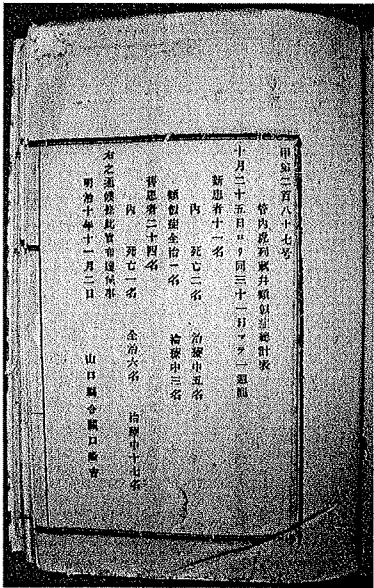 甲第二百八十七号
管内虎列剌并類似症総計表
十月二十五日ヨリ同三十一日マデ一週間
新患者十一名
内 死亡二名 治療中五名
類似症全治一名 治療中三名
旧患者二十四名
内 死亡一名 全治六名 治療中十七名
右之通候条此旨布達候事
明治十年十一月二日 山口県令関口隆吉